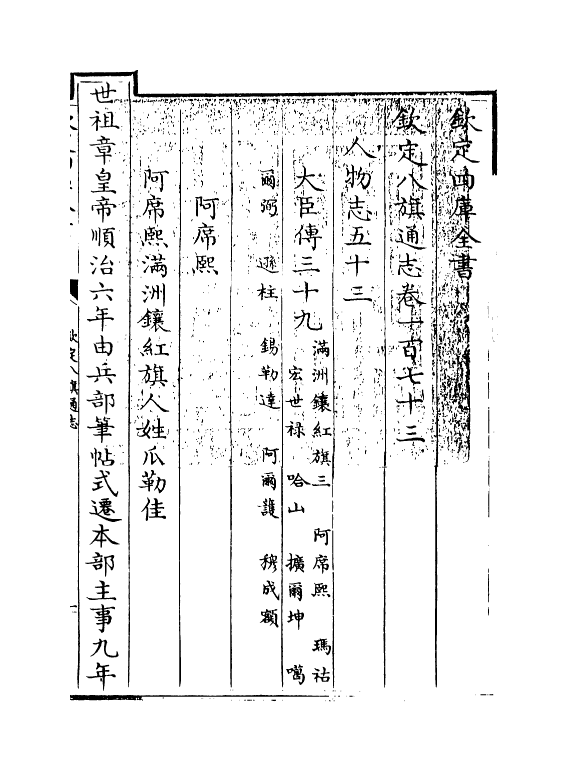 欽定四庫全書
欽定八旗通志卷一百七十三
人物志五十三
大臣傳三十九
滿洲鑲紅旗三 阿席熙 瑪祜
宏世禄 哈山 擴爾坤 噶
爾弼 遜柱 錫勒達 阿爾護 穆成額
阿席熙
阿席熙滿洲鑲紅旗人姓瓜勒佳
世祖章皇帝順治六年由兵部筆帖式遷本部主事九年
欽定八旗通志